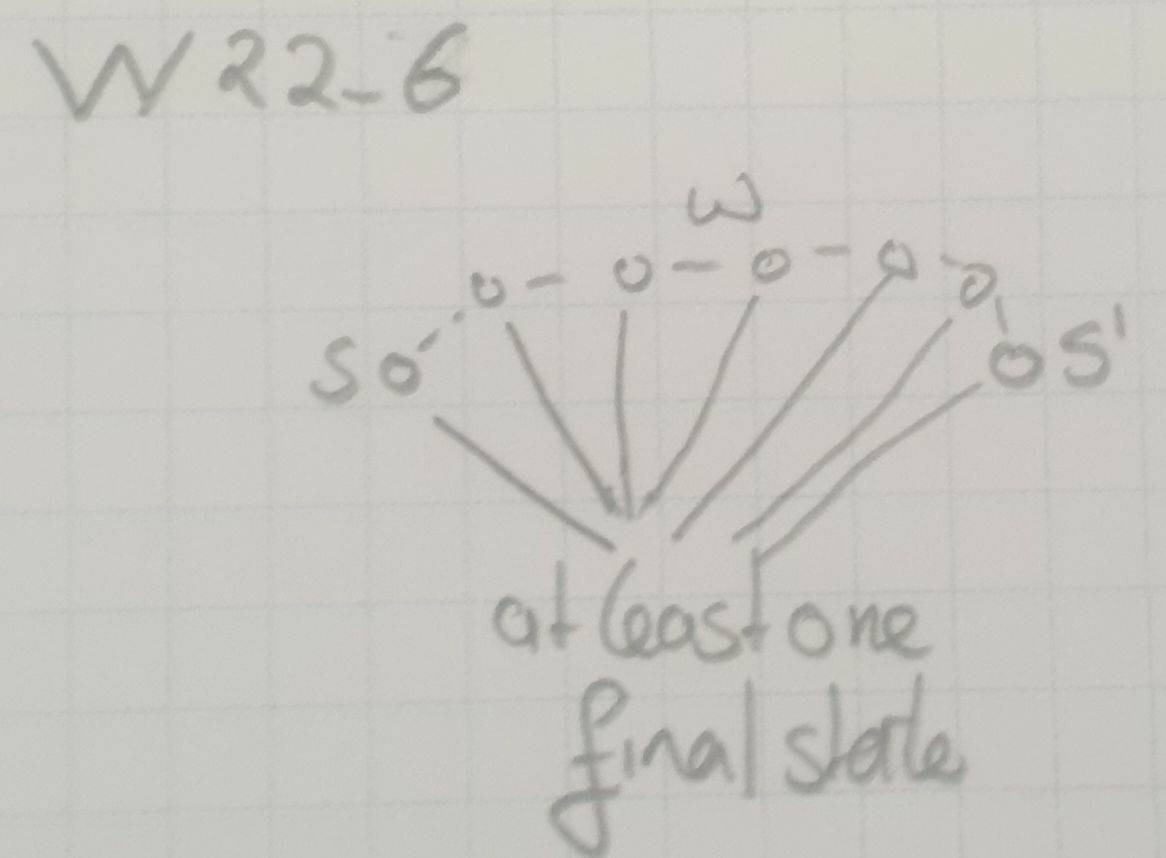 W22-6
w
S S'
at least one
final state